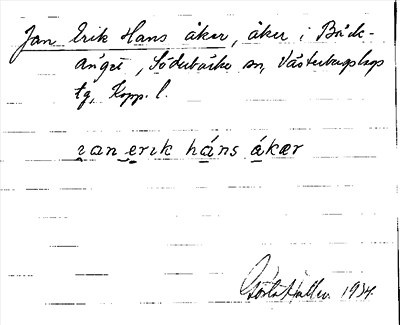 Jan Erik Hans åker, åker i Bäck-
änge, Söderbärke sn, Västerbergslags
tg, Kopp. l.
ɪan erik háns ákær
1934.